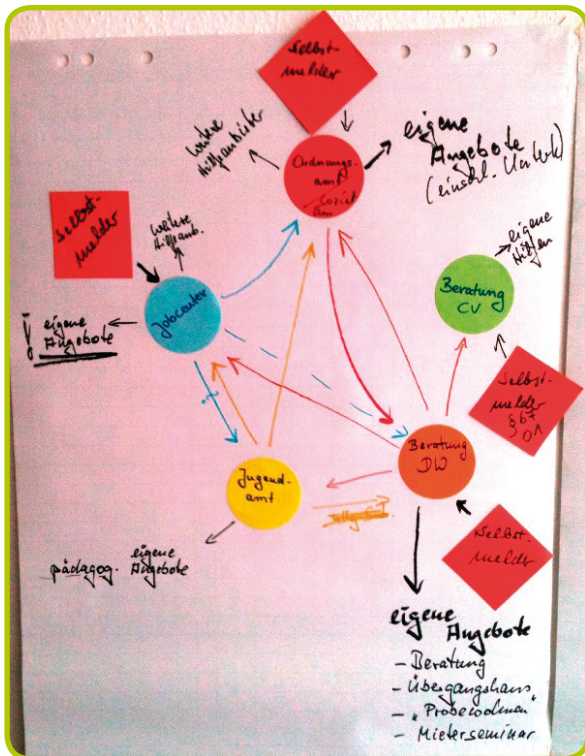 Selbst-
melder
weitere
Hilfeanbieter
Ordnungs-
amt
Sozial
amt
eigene
Angebote
(einschl. Unterk)
Selbst-
melder
weitere
Hilfeanb.
eigene
Hilfen
Jobcenter
Beratung
CV
! eigene
Angebote
Selbst-
melder
§ 67
Beratung
DW
Jugend-
amt
?
Selbst-
melder
pädagog. eigene
Angebote
eigene
Angebote
- Beratung
- Übergangshaus
- „Probewohnen"
- Mieterseminar